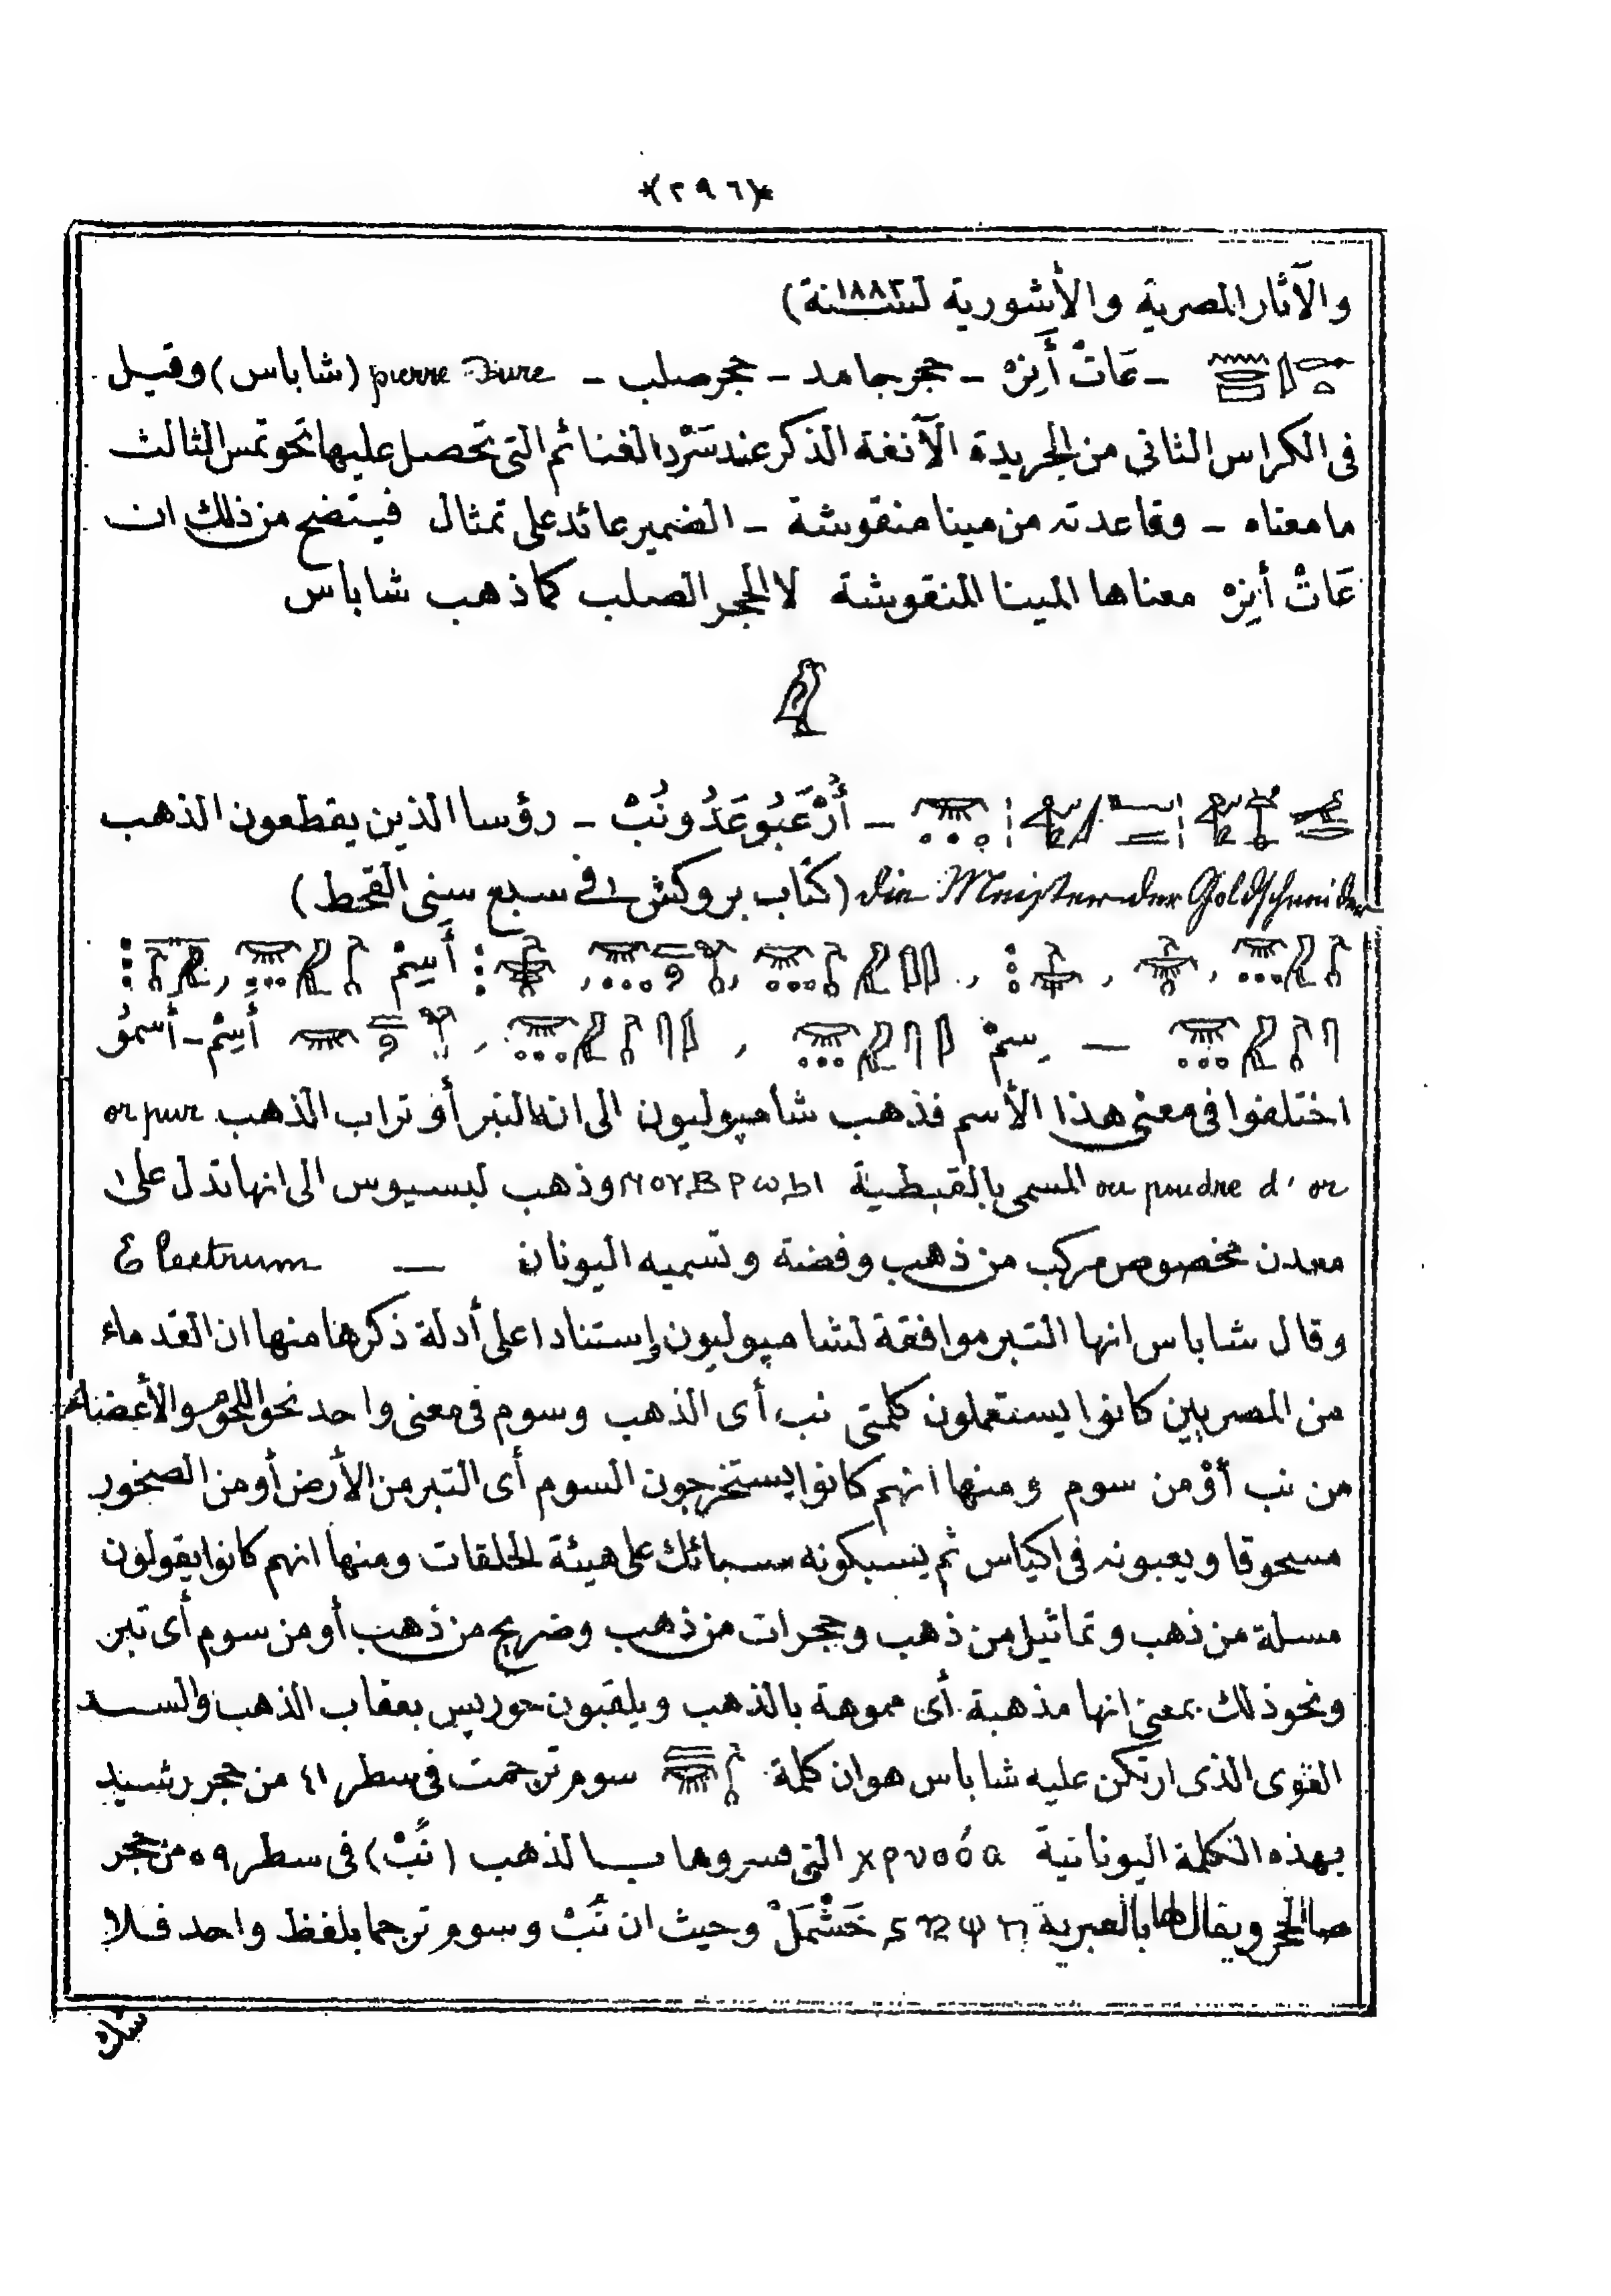 *(٢٩٦)*
والآثار المصرية والأشورية لسنة ١٨٨٢)
- عَاتْ أَنِرْهْ - حجر جامد - حجر صلب - pierre Dure (شاباس) وقيل
فى الكراس الثانى من الجريدة الآنفة الذكر عند سَرْد الغنائم التى تحصل عليها تحوتمس الثالث
ما معناه - وقاعدته من مينا منقوشة - الضمير عائد على تمثال فيتضح من ذلك ان
عَاتْ أنِرْهْ معناها المينا المنقوشة لا الحجر الصلب كما ذهب شاباس
𓅐
- أُرْعَبُو عَدُو نُبْ - رؤسا الذين يقطعون الذهب
die Meister der Goldschneider (كتاب بروكش فى سبع سنى القحط)
أَسِمْ
— سِمْ أَسِمْ - أَسمُو
اختلفوا فى معنى هذا الأسم فذهب شامپوليون الى انه التبر أو تراب الذهب or pur
ou poudre d'or المسمى بالقبطية وذهب لبسيوس الى انها تدل على
معدن مخصوص مركب من ذهب وفضة وتسميه اليونان — Electrum
وقال شاباس انها التبر موافقة لشامپوليون إستنادا على أدلة ذكرها منها ان القدماء
من المصريين كانوا يستعملون كلمتى نب أى الذهب وسوم فى معنى واحد نحو اللحوم والأعضاء
من نب أوْ من سوم ومنها انهم كانوا يستخرجون السوم أى التبر من الأرض أو من الصخور
مسحوقا ويعبونه فى اكياس ثم يسبكونه سبائك على هيئة الحلقات ومنها انهم كانوا يقولون
مسلة من ذهب وتماثيل من ذهب وحجرات من ذهب وضريح من ذهب أو من سوم أى تبر
ونحو ذلك بمعنى انها مذهبة أى مموهة بالذهب ويلقبون حوريس بعقاب الذهب والسند
القوى الذى ارتكن عليه شاباس هو ان كلمة سوم ترجمت فى سطر ٤١ من حجر رشيد
بهذه الكلمة اليونانية χρυσόα التى فسروها بالذهب (نُبْ) فى سطر ٥٩ من حجر
صا الحجر ويقال لها بالعبرية חשמל خَشْمَلْ وحيث ان نُبْ وسوم ترجما بلفظ واحد فلا